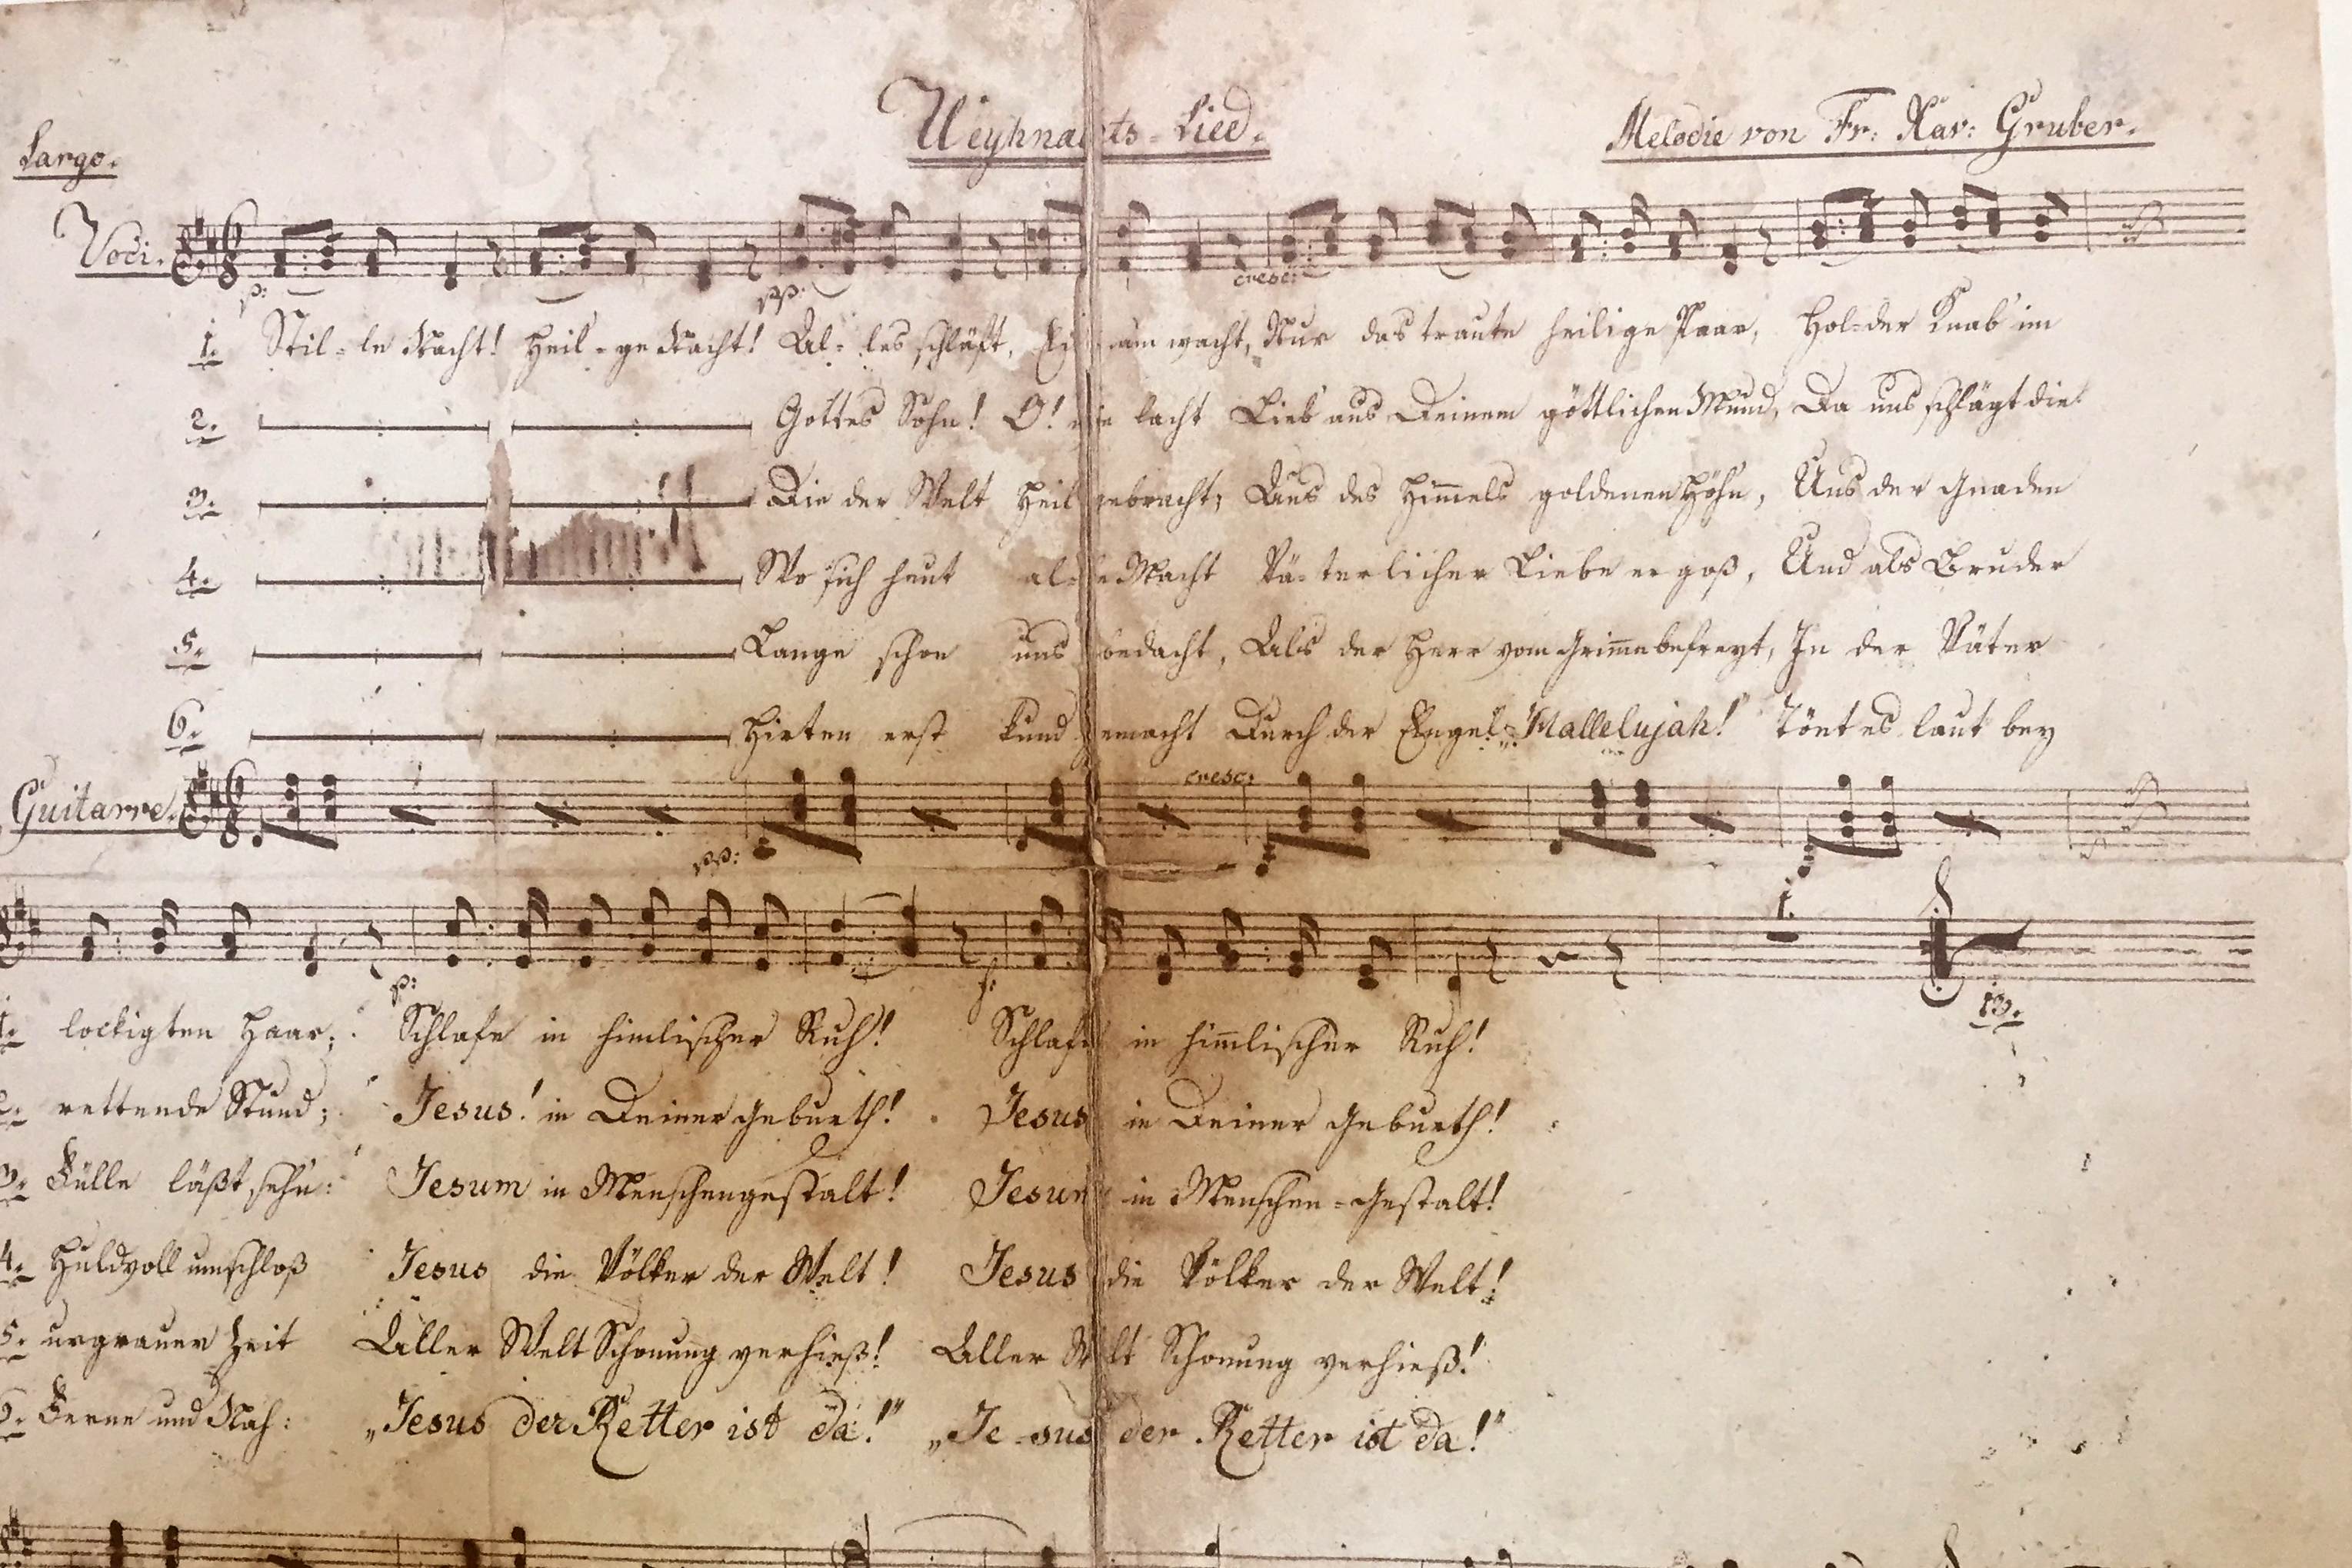 Weyhnachts-Lied.
Melodie von Fr: Xav: Gruber.
Largo.
Voci.
p: pp: cresc:
1. Stil-le Nacht! Heil-ge Nacht! Al-les schläft, Ei am wacht, Nur das traute heilige Paar, Hol-der Knab' im
2. Gottes Sohn! O! wie lacht Lieb' aus Deinem göttlichen Mund, Da uns schlägt die
3. Die der Welt Heil gebracht; Aus des Him̅els goldenen Höhn, Uns der Gnaden
4. Wo sich heut al-le Macht Vä-terlicher Liebe ergoß, Und als Bruder
5. Lange schon uns bedacht, Als der Herr vom Grim̅e befreyt, In der Väter
6. Hirten erst kund gemacht Durch der Engel "Hallelujah!" Tönt es laut bey
Guitarre.
pp: cresc:
p: f: 1.
13.
1. lockigten Haar; Schlafe in him̅lischer Ruh! Schlafe in him̅lischer Ruh!
2. rettende Stund; Jesus! in Deiner Geburth! Jesus in Deiner Geburth!
3. Fülle läßt sehn: Jesum in Menschengestalt! Jesum in Menschen-Gestalt!
4. Huldvoll umschloß Jesus die Völker der Welt! Jesus die Völker der Welt!
5. urgrauer Zeit Aller Welt Schonung verhieß! Aller Welt Schonung verhieß!
6. Ferne und Nah: „Jesus der Retter ist da!" „Je-sus der Retter ist da!"